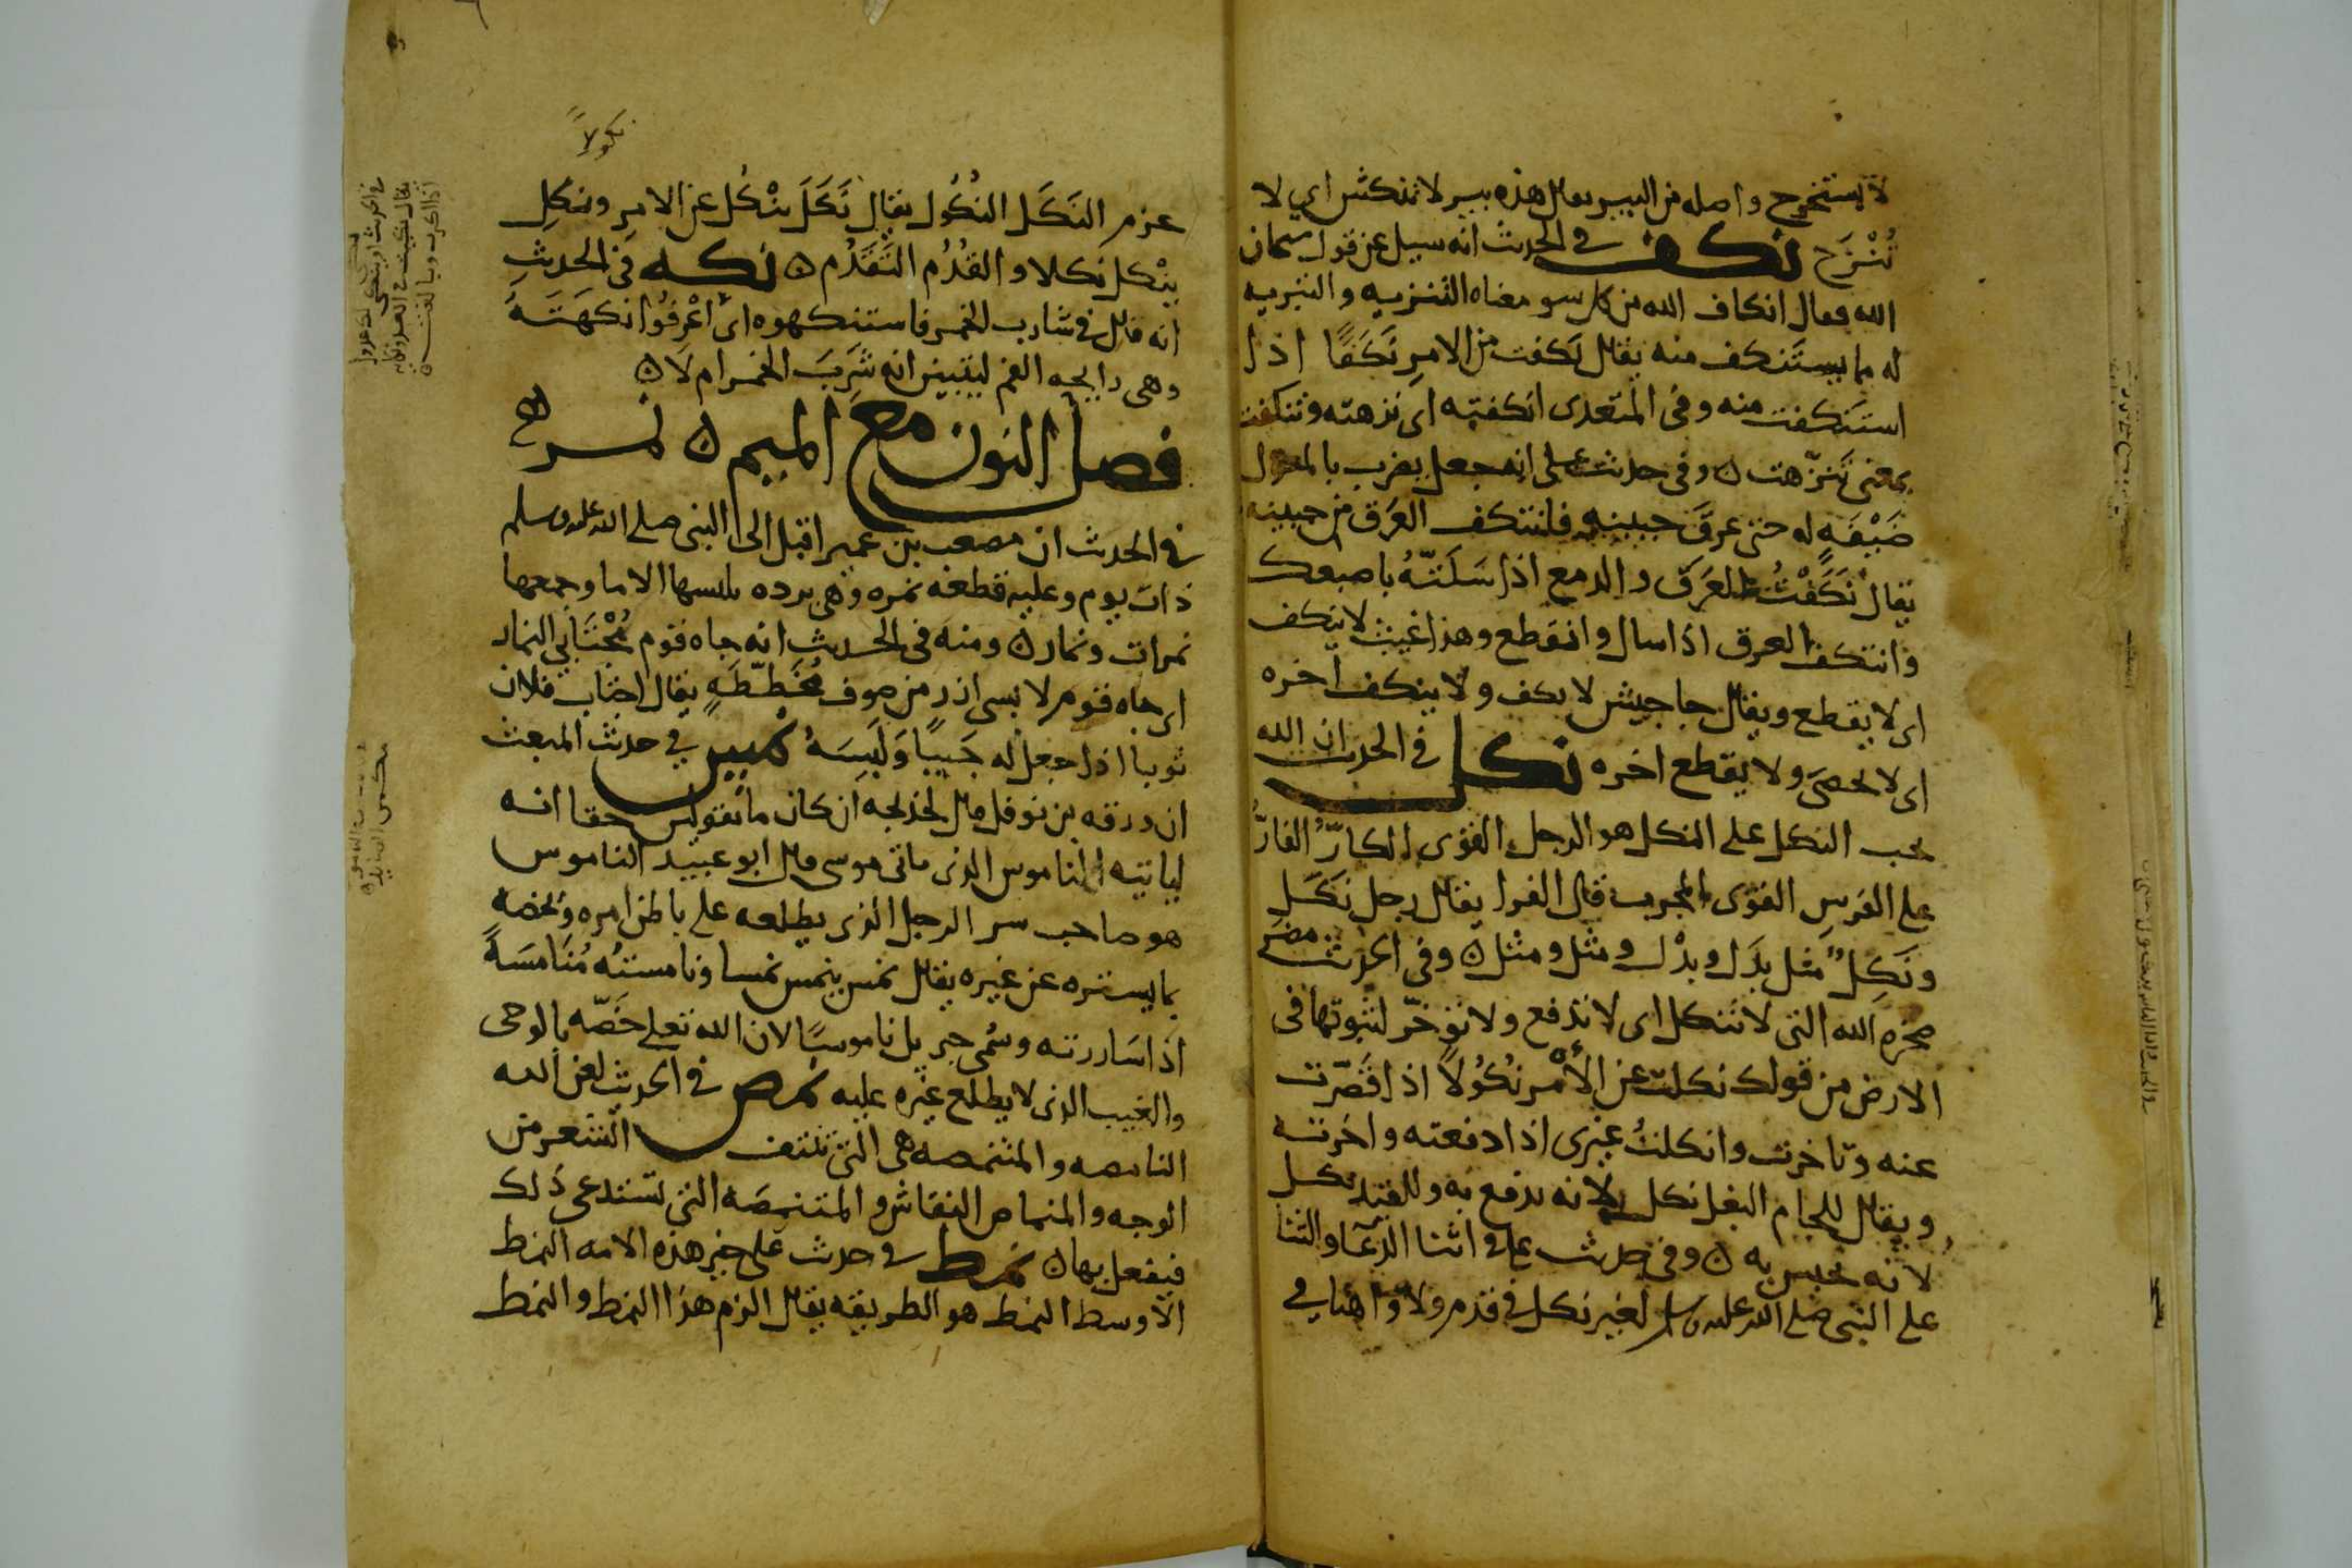 لا يستخرج واصله من البير يقال هذه بير لا تنكش اي لا
تُنْزَح نكف في الحدث انه سيل عن قول سبحان
الله فقال انكاف الله من كل سو معناه التنزيه والتبريه
له مما يستنكف منه يقال نكفت من الامر نَكَفًا اذا
استنكفت منه وفى المتعدى انكفته اى نزهته وتنكفت
بمعنى تَنَزّهت ه وفى حدث على انه جعل يضرب بالمعول
له حتى عرق جبينه فانتكف العَرَق من جبينه
يقال نَكَفْتُ العَرَق والدمع اذا سَلَتّهُ باصبعك
وانتكف العرق اذا سال وانقطع وهذا غيث لا ينكف
اى لا يقطع ويقال جا جيش لا يكف ولا ينكف اخره
اى لا يحصى ولا يقطع اخره نكل في الحدث ان الله
يحب النكل على النكل هو الرجل القوى الكارّ الفارّ
على الفرس القوى المجرب قال الفرا يقال رجل نَكَل
ونَكِلٌ مثل بدَل وبدْل ومثل ومثْل ه وفى الحدث مضر
صخره الله التى لا تنكل اى لا تدفع ولا توخّر لثبوتها فى
الارض من قولك نكلت عن الأمر نُكُولاً اذا قَصّرت
عنه وتاخرت وانكلتُ غيرى اذا دفعته واخرته
ويقال للجام البغل نكل لانه يدفع به وللقيد نكل
لانه يحبس به ه وفى حدث على فى اثنا الدعا والثنا
على النبى صلى الله عليه وسلم لغير نكل فى قدم ولا واهنا في
نكولاً
عزم النَكَل النُكُول يقال نَكَلَ ينْكُل عن الامر ونَكِل
ينْكل نكلا والقُدُم التَّقَدُّم ه نكه فى الحدثِ
انه قال فى شارب الخمر فاستنكهوه اى اعْرِفُوا نكهَتَه
وهى رايحه الفم ليتبين انه شَرِبَ الخمر ام لا ه
فصل النون مع الميم ه نمر
فى الحدث ان مصعب بن عمير اقبل الى النبى صلى الله عليه وسلم
ذات يوم وعليه قطعه نمره وهى برده يلبسها الاما وجمعها
نمرات ونمار ه ومنه فى الحدث انه جاه قوم مُجْتَابي النمار
اى جاه قوم لابسى ازر من صوف مُخَطّطَهٍ يقال اجتاب فلان
ثوبا اذا جعل له جَيبًا وَلَبِسَهُ نمس في حدث المبعث
ان ورقه بن نوفل قال لخديجه ان كان ما تقولين حقا انه
لياتيه الناموس الذى ياتى موسى قال ابو عبيد الناموس
هو صاحب سر الرجل الذى يطلعه على باطن امره ويخصه
بما يستره عن غيره يقال نمس ينمس نمسا ونامسته مُنَامَسَهً
اذا سَاررته وسُمى جبريل ناموسًا لان الله تعلى خَصّه بالوحى
والغيب الذى لا يطلع غيره عليه نمص فى الحدث لعن الله
النامصه والمتنمصه هى التى تنتف الشعر من
الوجه والمنماص النقاش والمتنمصَه التى تستدعى ذلك
فيفعل بها ه نمط فى حدث على خير هذه الامه النمط
الاوسط النمط هو الطريقه يقال الزم هذا النمط والنمط